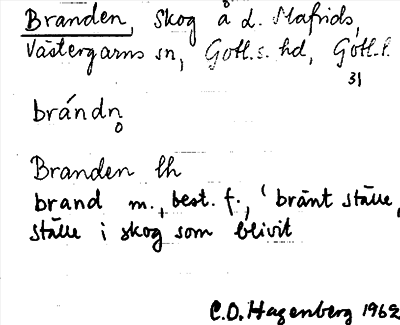 Branden, Skog å d. Mafrids,
Västergarns sn, Gotl. s. hd, Gotl. l.
31
brándn̥
Branden lh
brand m., best. f., ‘bränt ställe,
ställe i skog som blivit
C.O. Hagenberg 1962